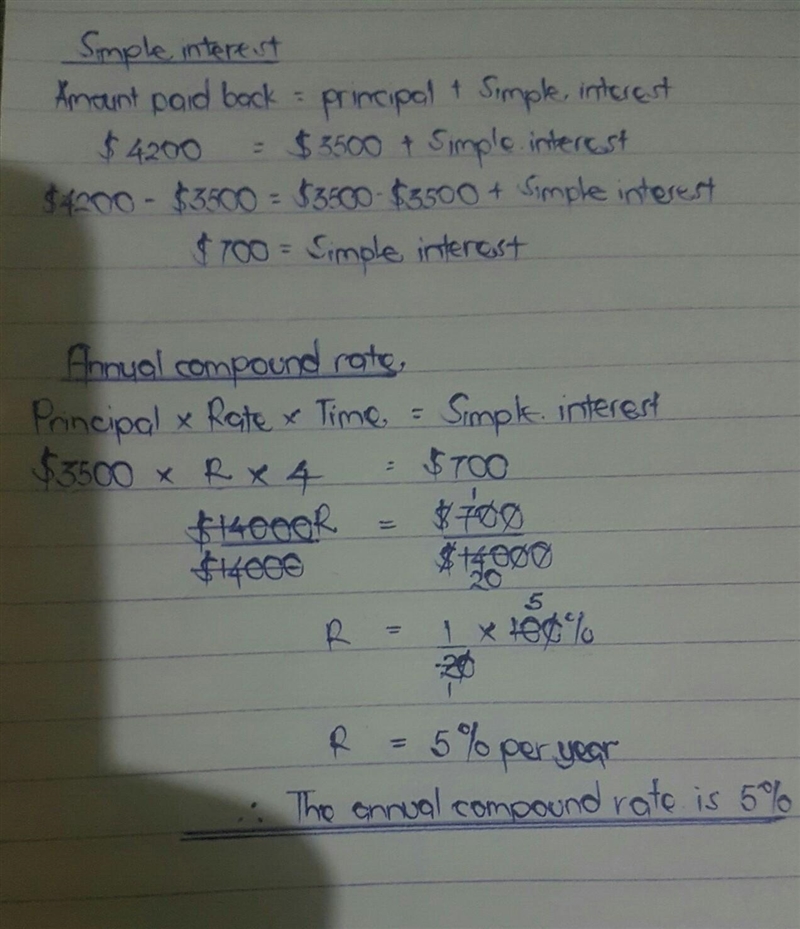 Simple interest
Amount paid back = principal + Simple interest
$4200 = $3500 + Simple interest
$4200 - $3500 = $3500 - $3500 + Simple interest
$700 = Simple interest
Annual compound rate.
Principal × Rate × Time = Simple interest
$3500 × R × 4 = $700
1
$14000R = $700
$14000 $14000
20
5
R = 1 × 100%
20
1
R = 5% per year
∴ The annual compound rate is 5%